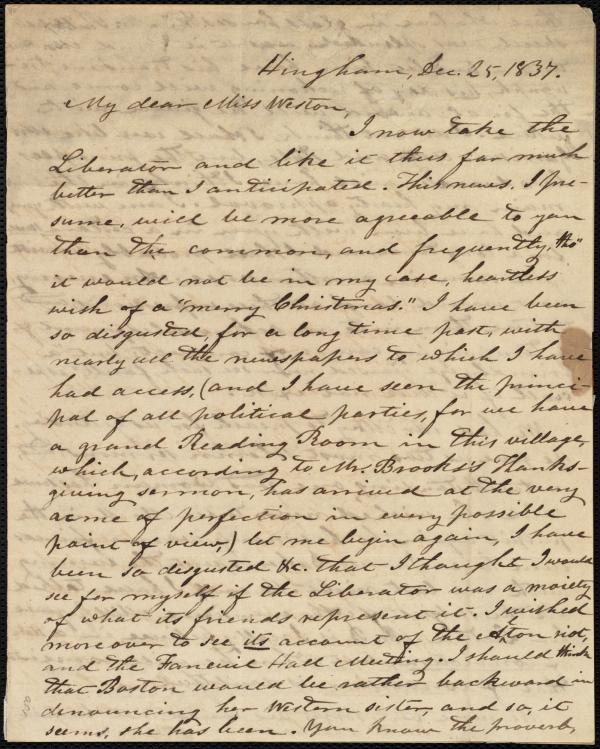 Hingham, Dec. 25, 1837.
My dear Miss Weston,
I now take the
Liberator and like it thus far much
better than I anticipated. This news. I pre-
sume, will be more agreeable to you
than the common, and frequently, tho'
it would not be in my case, heartless
wish of a "merry Christmas." I have been
so disgusted, for a long time past, with
nearly all the newspapers to which I have
had access, (and I have seen the princi-
pal of all political parties, for we have
a grand Reading Room in this village,
which, according to Mr. Brooks's Thanks-
giving sermon, has arrived at the very
acme of perfection in every possible
point of view,) let me begin again, I have
been so disgusted &c. that I thought I would
see for myself if the Liberator was a moiety
of what its friends represent it. I wished
moreover to see its account of the Alton riot,
and the Faneuil Hall Meeting. I should think
that Boston would be rather backward in
denouncing her Western sister, and so, it
seems, she has been. You know the proverb,